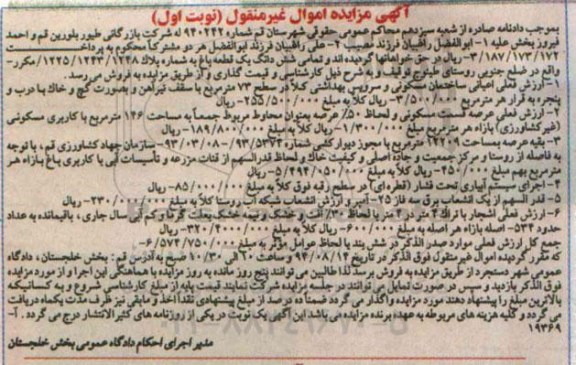 آگهی مزایده اموال غیرمنقول (نوبت اول)
بموجب دادنامه صادره از شعبه سیزدهم محاکم عمومی حقوقی شهرستان قم شماره ۹۴۰۲۴۲ له شرکت بازرگانی طیور بلورین قم و احمد
فیروز بخش علیه ۱- ابوالفضل راقبیان فرزند مصیب ۲- علی راقبیان فرزند ابوالفضل هر دو مشترکاً محکوم به پرداخت
۳/۱۸۷/۱۷۳/۱۷۲ ریال در حق خواهانها گردیده اند و تمامی شش دانگ یک قطعه باغ به شماره پلاک ۱۲۴۸/۱۲۴۳/۱۲۲۵ مکرر-
واقع در ضلع جنوبی روستای طینوج توقیف و به شرح ذیل کارشناسی و قیمت گذاری و از طریق مزایده به فروش می رسد.
۱- ارزش فعلی اعیانی ساختمان مسکونی و سرویس بهداشتی کلاً در سطح ۷۳ مترمربع با سقف تیرآهن و بصورت گچ و خاک با درب و
پنجره به قرار هر مترمربع ۳/۵۰۰/۰۰۰ ریال کلاً به مبلغ ۲۵۵/۵۰۰/۰۰۰- ریال
۲- ارزش فعلی عرصه قسمت مسکونی و لحاظ ۵۰٪ عرصه بعنوان محاوط مربوط جمعاً به مساحت ۱۴۶ مترمربع با کاربری مسکونی
(غیر کشاورزی) بازاء هر مترمربع مبلغ ۱/۳۰۰/۰۰۰- ریال کلاً به مبلغ ۱۸۹/۸۰۰/۰۰۰- ریال
۳- بقیه عرصه بمساحت ۱۲۲۰۹ مترمربع با مجوز دیوار کشی شماره ۹۳/۵۳۷۴- ۹۳/۰۳/۰۸- سازمان جهاد کشاورزی قم، با توجه
به فاصله از روستا و مرکز جمعیت و جاده اصلی و کیفیت خاک و لحاظ قدرالسهم از قنات مزرعه و تأسیسات آبی با کاربری باغ بازاء هر
مترمربع بهم مبلغ ۴۵۰/۰۰۰- ریال کلاً به مبلغ ۵/۴۹۴/۰۵۰/۰۰۰- ریال
۴- اجرای سیستم آبیاری تحت فشار (قطره ای) در سطح رقبه فوق کلاً به مبلغ ۸۵/۰۰۰/۰۰۰- ریال
۵- قدر السهم از یک انشعاب برق سه فاز ۲۵- آمپر و ارزش انشعاب شبکه آب روستا کلاً به مبلغ ۲۳۰/۰۰۰/۰۰۰- ریال
۶- ارزش فعلی اشجار با تراک ۴ متر در ۴ متر با لحاظ ۳۰٪ آفت و خشک و نیمه خشک بعلت گرما و کم آبی سال جاری، باقیمانده به عداد
حدود ۵۳۴- اصله بازاء هر اصله به مبلغ ۶۰۰/۰۰۰- ریال کلاً به مبلغ ۳۲۰/۴۰۰۰/۰۰۰- ریال
جمع کل ارزش فعلی موارد صدر الذکر در شش بند با لحاظ عوامل مؤثر به مبلغ ۶/۵۷۴/۷۵۰/۰۰۰- ریال
که مقرر گردیده اموال غیر منقول فوق الذکر در تاریخ ۹۴/۰۸/۱۴ و ساعت ۲۰ الی ۱۰/۳۰ صبح به آدرس قم: بخش خلجستان، دادگاه
عمومی شهر دستجرد از طریق مزایده به فروش برسد لذا طالبین می توانند پنج روز مانده به روز مزایده با هماهنگی این اجرا و از مورد مزایده
فوق الذکر بازدید و سپس در صورت تمایل می توانند در جلسه مزایده شرکت نمایند قیمت پایه از مبلغ کارشناسی شروع و به کسانیکه
بالاترین مبلغ را پیشنهاد دهند مورد مزایده واگذار می گردد ضمناً ده درصد از مبلغ پیشنهادی نقداً اخذ و مابقی نیز ظرف مدت یکماه دریافت
می گردد و کلیه هزینه های مربوطه به عهده برنده مزایده می باشد این آگهی یک نوبت در یکی از روزنامه های کثیرالانتشار درج می گردد. آ-
۱۹۳۶۹
مدیر اجرای احکام دادگاه عمومی بخش خلجستان